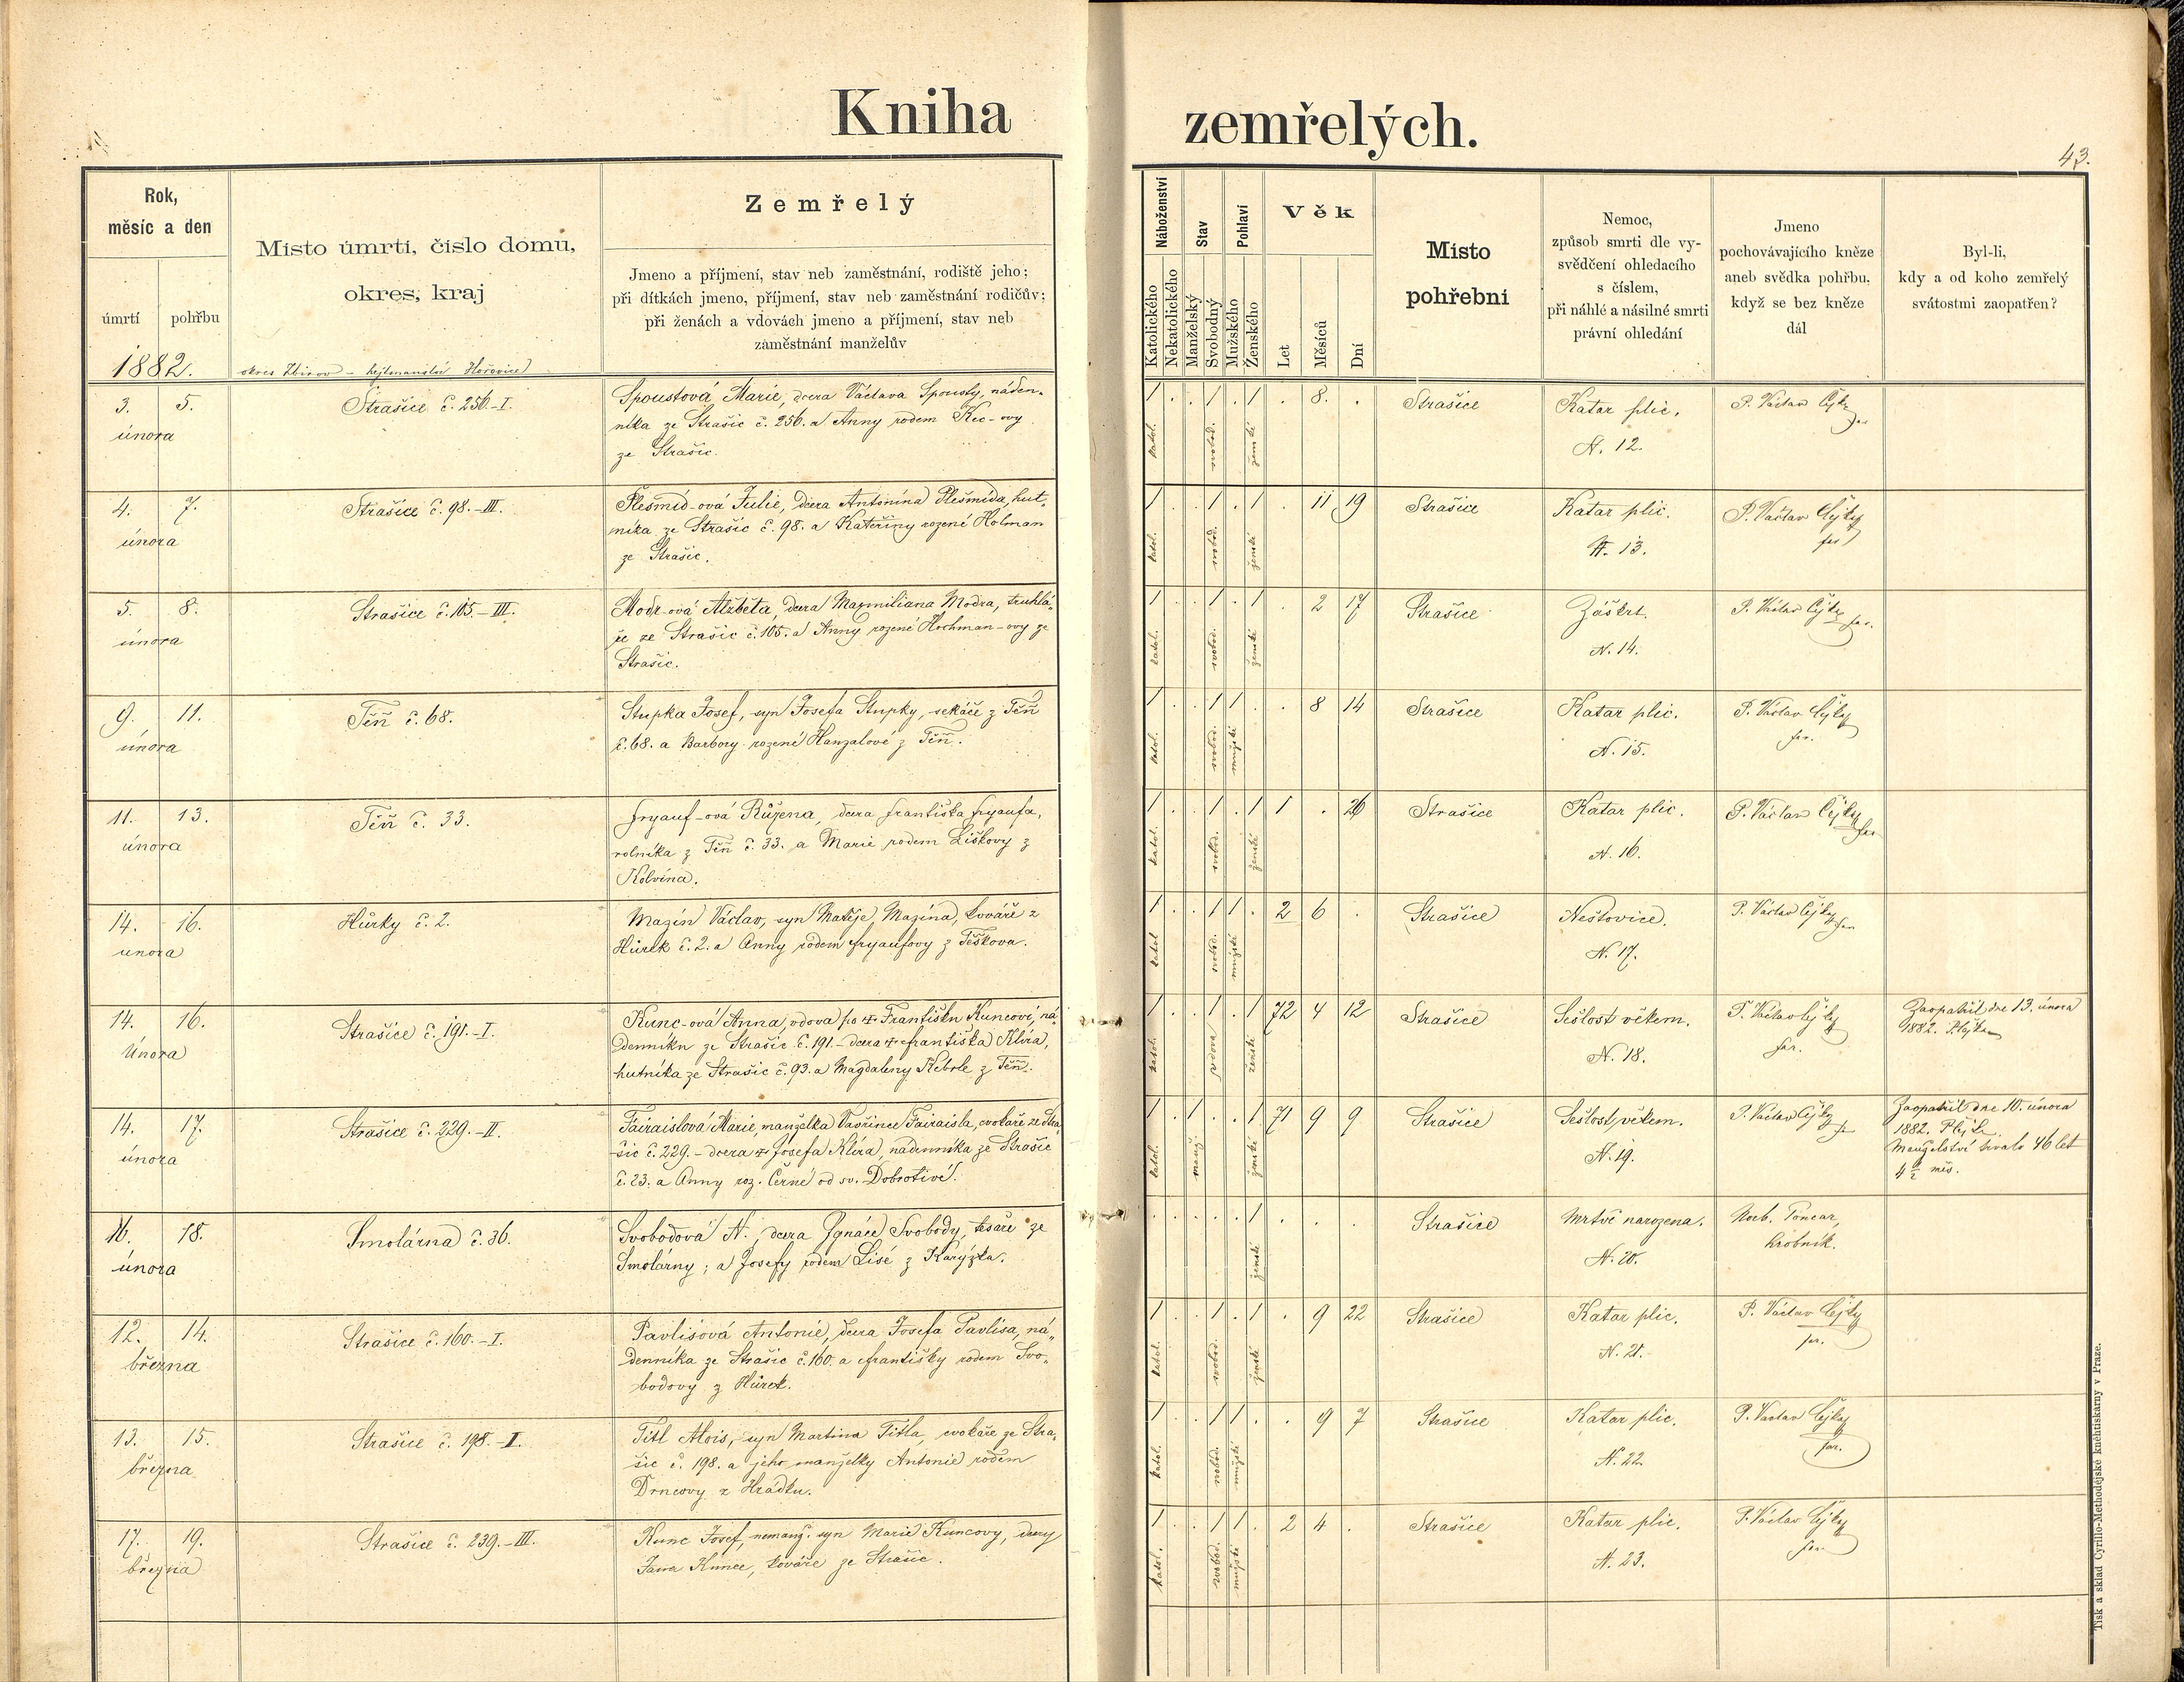 Kniha zemřelých.
43.
Rok,
měsíc a den
úmrtí
pohřbu
Místo úmrtí, číslo domu,
okres, kraj
Zemřelý
Jmeno a příjmení, stav neb zaměstnání, rodiště jeho;
při dítkách jmeno, příjmení, stav neb zaměstnání rodičův;
při ženách a vdovách jmeno a příjmení, stav neb
zaměstnání manželův
Náboženství
Katolického
Nekatolického
Stav
Manželský
Svobodný
Pohlaví
Mužského
Ženského
Věk
Let
Měsíců
Dní
Místo
pohřební
Nemoc,
způsob smrti dle vy-
svědčení ohledacího
s číslem,
při náhlé a násilné smrti
právní ohledání
Jmeno
pochovávajícího kněze
aneb svědka pohřbu,
když se bez kněze
dál
Byl-li,
kdy a od koho zemřelý
svátostmi zaopatřen?
1882.
okres Zbirov – hejtmanství Hořovice
3. 5.
února
Strašice č. 256.-I.
Spoustová Marie, dcera Václava Spousty, náden-
níka ze Strašic č. 256. a Anny rodem Kec-ovy
ze Strašic.
1 . . 1 . 1 . 8. .
katol. svobod. ženské
Strašice
Katar plic.
N. 12.
P. Václav Čejka
far
4. 7.
února
Strašice č. 98.-III.
Plešmíd-ová Julie, dcera Antonína Plešmída, hut-
níka ze Strašic č. 98. a Kateřiny rozené Holman
ze Strašic.
1 . . 1 . 1 . 11 19
katol. svobod. ženské
Strašice
Katar plic.
N. 13.
P. Václav Čejka
far
5. 8.
února
Strašice č. 105.-III.
Modr-ová Alžběta, dcera Maxmiliana Modra, truhlá-
ře ze Strašic č. 105. a Anny rozené Hochman-ovy ze
Strašic.
1 . . 1 . 1 . 2 17
katol. svobod. ženské
Strašice
Záškrt.
N. 14.
P. Václav Čejka far.
9. 11.
února
Těň č. 68.
Stupka Josef, syn Josefa Stupky, sekáče z Těň
č. 68. a Barbory rozené Hanzalové z Těň.
1 . . 1 1 . . 8 14
katol. svobod. mužské
Strašice
Katar plic.
N. 15.
P. Václav Čejka
far.
11. 13.
února
Těň č. 33.
Fryauf-ová Růžena, dcera Františka Fryaufa,
rolníka z Těň č. 33. a Marie rodem Liškovy z
Kolvína.
1 . . 1 . 1 1 . 26
katol. svobod. ženské
Strašice
Katar plic.
N. 16.
P. Václav Čejka
far
14. 16.
února
Hůrky č. 2.
Mazín Václav, syn Matěje Mazína, kováře z
Hůrek č. 2. a Anny rodem Fryaufovy z Těškova.
1 . . 1 1 . 2 6 .
katol svobod. mužské
Strašice
Neštovice.
N. 17.
P. Václav Čejka
far
14. 16.
Února
Strašice č. 191.-I.
Kunc-ová Anna, vdova po † Františku Kuncovi, ná-
denníku ze Strašic č. 191. – dcera † Františka Klíra,
hutníka ze Strašic č. 93. a Magdaleny Kebrle z Těň.
1 . . 1 . 1 72 4 12
katol. vdova ženské
Strašice
Sešlost věkem.
N. 18.
P. Václav Čejka
far.
Zaopatřil dne 13. února
1882. P. Čejka
14. 17.
února
Strašice č. 229.-II.
Fairaislová Marie, manželka Vavřince Fairaisla, cvokaře ze Stra-
šic č. 229. – dcera † Josefa Klíra, nádenníka ze Strašic
č. 23. a Anny roz. Černé od sv. Dobrotivé.
1 . 1 . . 1 71 9 9
katol. manž. ženské
Strašice
Sešlost věkem.
N. 19.
P. Václav Čejka
far
Zaopatřil dne 10. února
1882. P. Čejka
Manželství trvalo 46 let
4 1/2 měs.
16. 18.
února
Smolárna č. 36.
Svobodová N., dcera Ignáce Svobody, tesaře ze
Smolárny; a Josefy rodem Lisé z Karýzka.
. . . . . 1 . . .
ženské
Strašice
Mrtvě narozena.
N. 20.
Norb. Toncar,
hrobník.
12. 14.
března
Strašice č. 160.-I.
Pavlisová Antonie, dcera Josefa Pavlisa, ná-
denníka ze Strašic č. 160. a Františky rodem Svo-
bodovy z Hůrek.
1 . . 1 . 1 . 9 22
katol. svobod. ženské
Strašice
Katar plic.
N. 21.
P. Václav Čejka
far.
13. 15.
března
Strašice č. 198.-I.
Titl Alois, syn Martina Titla, cvokaře ze Stra-
šic č. 198. a jeho manželky Antonie rodem
Drncovy z Hrádku.
1 . . 1 1 . . 9 7
katol. svobod. mužské
Strašice
Katar plic.
N. 22.
P. Václav Čejka
far.
17. 19.
března
Strašice č. 239.-III.
Kunc Josef, nemanž. syn Marie Kuncovy, dcery
Jana Kunce, kováře ze Strašic.
1 . . 1 1 . 2 4 .
katol. svobod. mužské
Strašice
Katar plic.
N. 23.
P. Václav Čejka
far
Tisk a sklad Cyrillo-Methodějské kněhtiskárny v Praze.